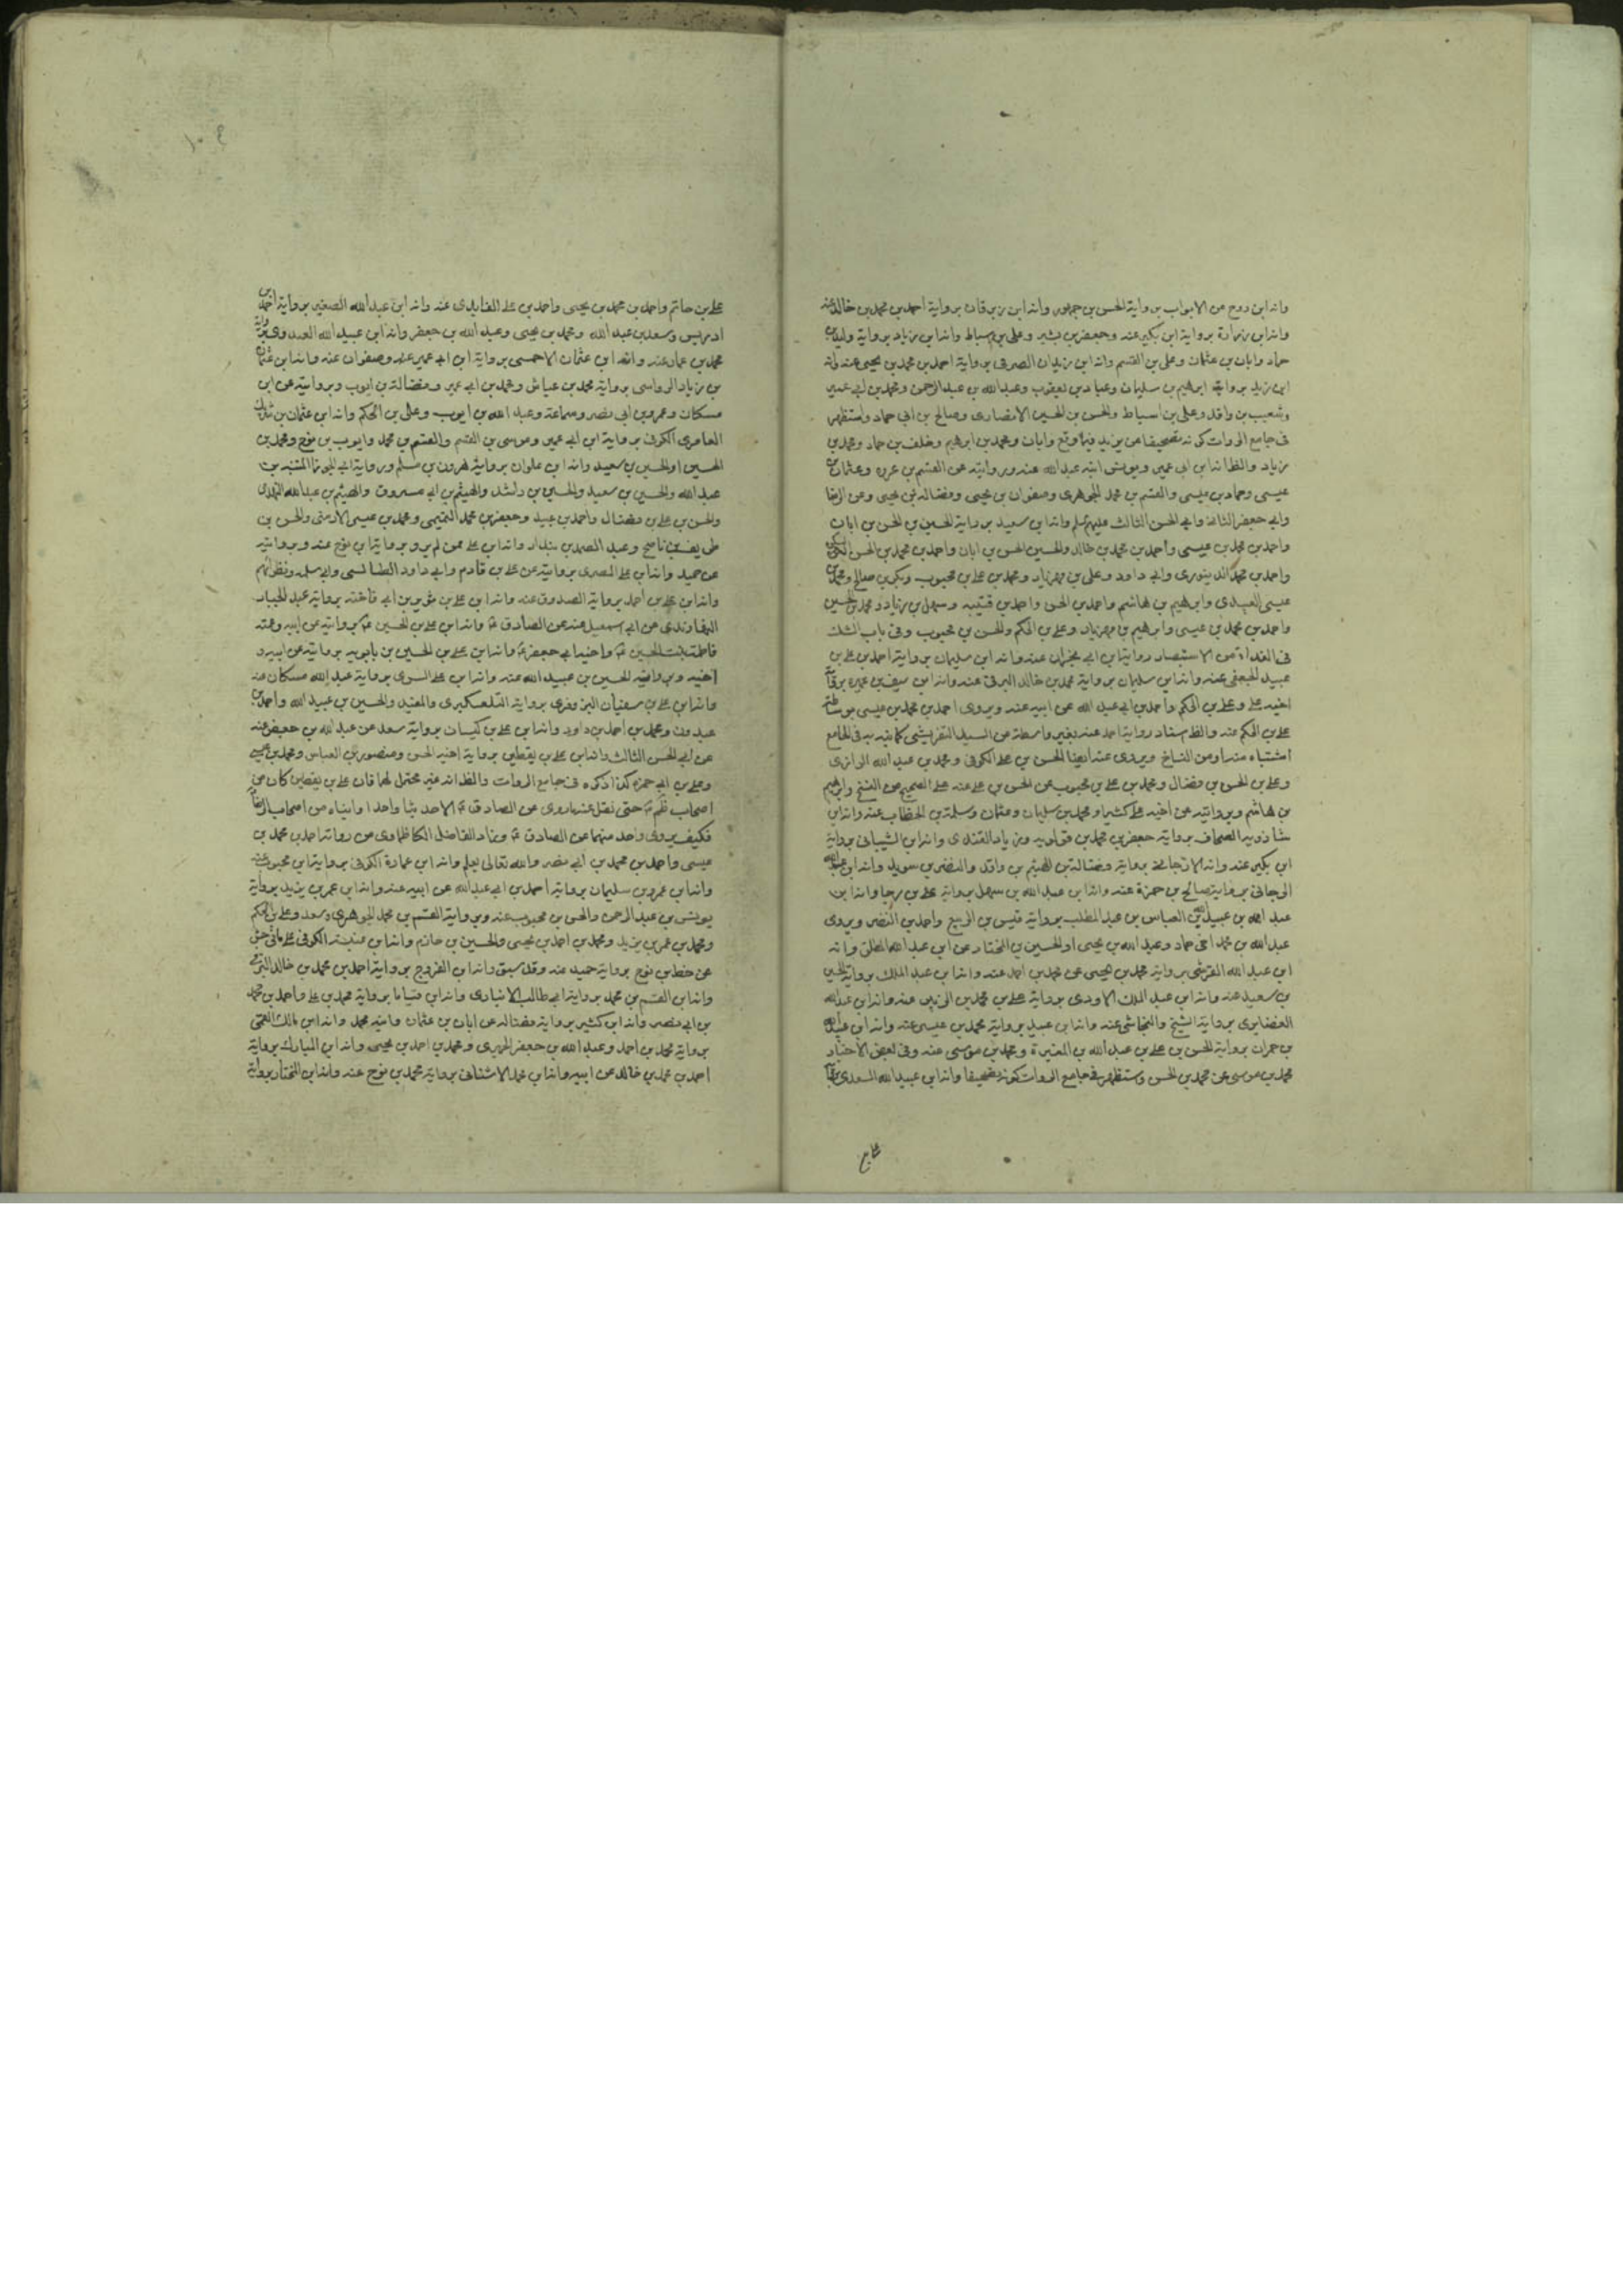 وانه ابن روح من الابواب برواية الحسن بن جمهور وانه ابن زبرقان برواية احمد بن محمد بن خالد عنه
وانه ابن زرارة برواية ابن بكير عنه وجعفر بن بشير وعلى بن اسباط وانه ابن زياد برواية
حماد وابان بن عثمان وعلى بن القسم وانه ابن زيدان الصرفى برواية احمد بن محمد بن يحيى عنه وانه
ابن زيد برواية ابرهيم بن سليمان وعباد بن يعقوب وعبد الله بن عبد الرحمن ومحمد بن ابى عمير
وشعيب بن واقد وعلى بن اسباط والحسن بن الحسين الانصارى وصالح بن ابى حماد واستظهر
فى جامع الروات كونه تصحيفا من يزيد فيما وقع وابان ومحمد بن ابرهيم وخلف بن حماد ومحمد بن
زياد والظ انه ابن ابى عمير ويونس ابنه عبد الله عنه وبروايته عن القسم بن عروه وعثمان بن
عيسى وحماد بن عيسى والقسم بن محمد الجوهرى وصفوان بن يحيى وفضالة بن يحيى وعن الرضا
وابى جعفر الثانى وابى الحسن الثالث عليهم السلم وانه ابن سعيد برواية الحسين بن الحسن بن ابان
واحمد بن محمد بن عيسى واحمد بن محمد بن خالد والحسين الحسن بن ابان واحمد بن محمد بن الحسن
واحمد بن محمد الدينورى وابى داود وعلى بن مهزيار ومحمد بن على بن محبوب وبكر بن صالح ومحمد بن
عيسى العبيدى وابرهيم بن هاشم واحمد بن الحسن واحمد بن قتيبه وسهل بن زياد ومحمد بن الحسين
واحمد بن محمد بن عيسى وابرهيم بن مهزيار وعلى بن الحكم والحسن بن محبوب وفى باب الشك
فى الغداة من الاستبصار رواية ابن ابى نجران عنه وانه ابن سليمان برواية احمد بن على بن
عبيد الجعفى عنه وانه ابن سليمان برواية محمد بن خالد البرقى عنه وانه ابن سيف بن عميره برواية
اخيه على وعلى بن الحكم واحمد بن ابى عبد الله عن ابيه عنه ويروى احمد بن محمد بن عيسى بوساطة
على بن الحكم عنه والظ استناد رواية احمد عنه بغير واسطة من السيد التفريشى كما نبه به فى الجامع
اشتباه منه او من النساخ ويروى عنه ايضا الحسن بن على الكوفى ومحمد بن عبد الله الرازى
وعلى بن الحسن بن فضال ومحمد بن على بن محبوب عن الحسن بن على عنه على الصحيح من النسخ وابرهيم
بن هاشم وبروايته عن اخيه على كثيرا ومحمد بن سليمان وعثمان وسلمة بن الخطاب عنه وانه ابن
شاذويه الصحاف برواية جعفر بن محمد بن قولويه وزياد القندى وانه ابن الشيبانى برواية
ابن بكير عنه وانه الارجانى برواية وفضالة بن الهيثم بن واقد والنضر بن سويد وانه ابن عبد الله
الرجانى برواية صالح بن حمزة عنه وانه ابن عبد الله بن سهل برواية على بن رجا وانه ابن
عبد الله بن عبيد الله بن العباس بن عبد المطلب برواية قيس بن الربيع واحمد بن النضر ويروى
عبد الله بن محمد اخى حماد وعبد الله بن يحيى او الحسين بن المختار عن ابن عبد الله المطلق وانه
ابن عبد الله القرشى برواية محمد بن يحيى عن محمد بن احمد عنه وانه ابن عبد الملك برواية الحسين
بن سعيد عنه وانه ابن عبد الملك الاودى برواية على بن محمد بن الزبير عنه وانه ابن عبد الله
الغضايرى برواية الشيخ والنجاشى عنه وانه ابن عبيد برواية محمد بن عيسى عنه وانه ابن عبيد الله
بن حمران برواية الحسن بن على بن عبد الله بن المغيرة ومحمد بن موسى عنه وفى بعض الاخبار
محمد بن موسى عن محمد بن الحسن واستظهر فى جامع الروات كونه تصحيفا وانه ابن عبيد الله السعدى برواية
على بن حاتم واحمد بن محمد بن يحيى واحمد بن على الفايدى عنه وانه ابن عبد الله الصغير برواية احمد بن
ادريس وسعد بن عبد الله ومحمد بن يحيى وعبد الله بن جعفر وانه ابن عبيد الله العبدوى برواية
محمد بن عماد عنه وانه ابن عثمان الاحمسى برواية ابن ابى عمير عنه وصفوان عنه وانه ابن عثمان
بن زياد الرواسى برواية محمد بن عياش ومحمد بن ابى عمير وفضالة بن ايوب وبروايته عن ابن
مسكان وعمرو بن ابى نصر وسماعة وعبد الله بن ايوب وعلى بن الحكم وانه ابن عثمان بن شريك
العامرى الكوفى برواية ابن ابى عمير وموسى بن القسم والقسم بن محمد وايوب بن نوح ومحمد بن
الحسين او الحسين بن سعيد وانه ابن علوان برواية هرون بن مسلم وبرواية ابى الجوزا المنبه بن
عبد الله والحسين بن سعيد والحسين بن راشد والهيثم بن ابى مسروق والهيثم بن عبد الله النهدى
والحسن بن على بن فضال واحمد بن عبيد وجعفر بن محمد التميمى ومحمد بن عيسى الارمنى والحسن بن
طريف بن ناصح وعبد الصمد بن بندار وانه ابن على ممن لم يرو برواية ابن نوح عنه وبروايته
عن حميد وانه ابن على المصرى بروايته عن على بن قادم وابى داود الطيالسى وابى سلمه ونظرائهم
وانه ابن على بن احمد برواية الصدوق عنه وانه ابن على بن ثوير بن ابى فاخته برواية عبد الجبار
النهاوندى عن ابى اسمعيل عنه عن الصادق ع وانه ابن على بن الحسين ع بروايته عن ابيه وعمته
فاطمة بنت الحسين ع واخيه ابى جعفر ع وانه ابن على بن الحسين بن بابويه بروايته عن ابيه و
اخيه وبرواية الحسين بن عبيد الله عنه وانه ابن على السرى برواية عبد الله مسكان عنه
وانه ابن على بن سفيان البزوفرى برواية التلعكبرى والمفيد والحسين بن عبيد الله واحمد بن
عبدون ومحمد بن احمد بن داود وانه ابن على بن كيسان برواية سعد عن عبد الله بن جعفر عنه
عن ابى الحسن الثالث وانه ابن على بن يقطين برواية اخيه الحسن ومنصور بن العباس ومحمد بن عيسى
وعلى بن ابى حمزه كذا ذكره فى جامع الروات والظ انه غير محتمل لها فان على بن يقطين كان من
اصحاب ظم ع حتى نقل عنه ما روى عن الصادق ع الا حديثا واحدا وابناه من اصحاب الرضا ع
فكيف يروى واحد منهما عن الصادق ع وزاد الفاضل الكاظماوى من رواته احمد بن محمد بن
عيسى واحمد بن محمد بن ابى نصر والله تعالى يعلم وانه ابن عمارة الكوفى برواية ابن محبوب عنه
وانه ابن عمرو بن سليمان برواية احمد بن ابى عبد الله عن ابيه عنه وانه ابن عمر بن يزيد برواية
يونس بن عبد الرحمن والحسن بن محبوب عنه وبرواية القسم بن محمد الجوهرى وسعد وعلى بن الحكم
ومحمد بن عمر بن يزيد ومحمد بن احمد بن يحيى والحسين بن حازم وانه ابن عنبسة الكوفى على ما فى جش
عن خط بن نوح برواية حميد عنه وقد سبق وانه ابن الفروج برواية احمد بن محمد بن خالد البرقى
وانه ابن القسم بن محمد برواية ابى طالب الانبارى وانه ابن مياح برواية محمد بن على واحمد بن محمد
بن ابى نصر وانه ابن كثير برواية فضاله عن ابان بن عثمان وابنه محمد وانه ابن مالك القمى
برواية محمد بن احمد وعبد الله بن جعفر الحميرى ومحمد بن احمد بن يحيى وانه ابن المبارك برواية
احمد بن محمد بن خالد عن ابيه وانه ابن محمد الاشنانى برواية محمد بن نوح عنه وانه ابن المختار برواية